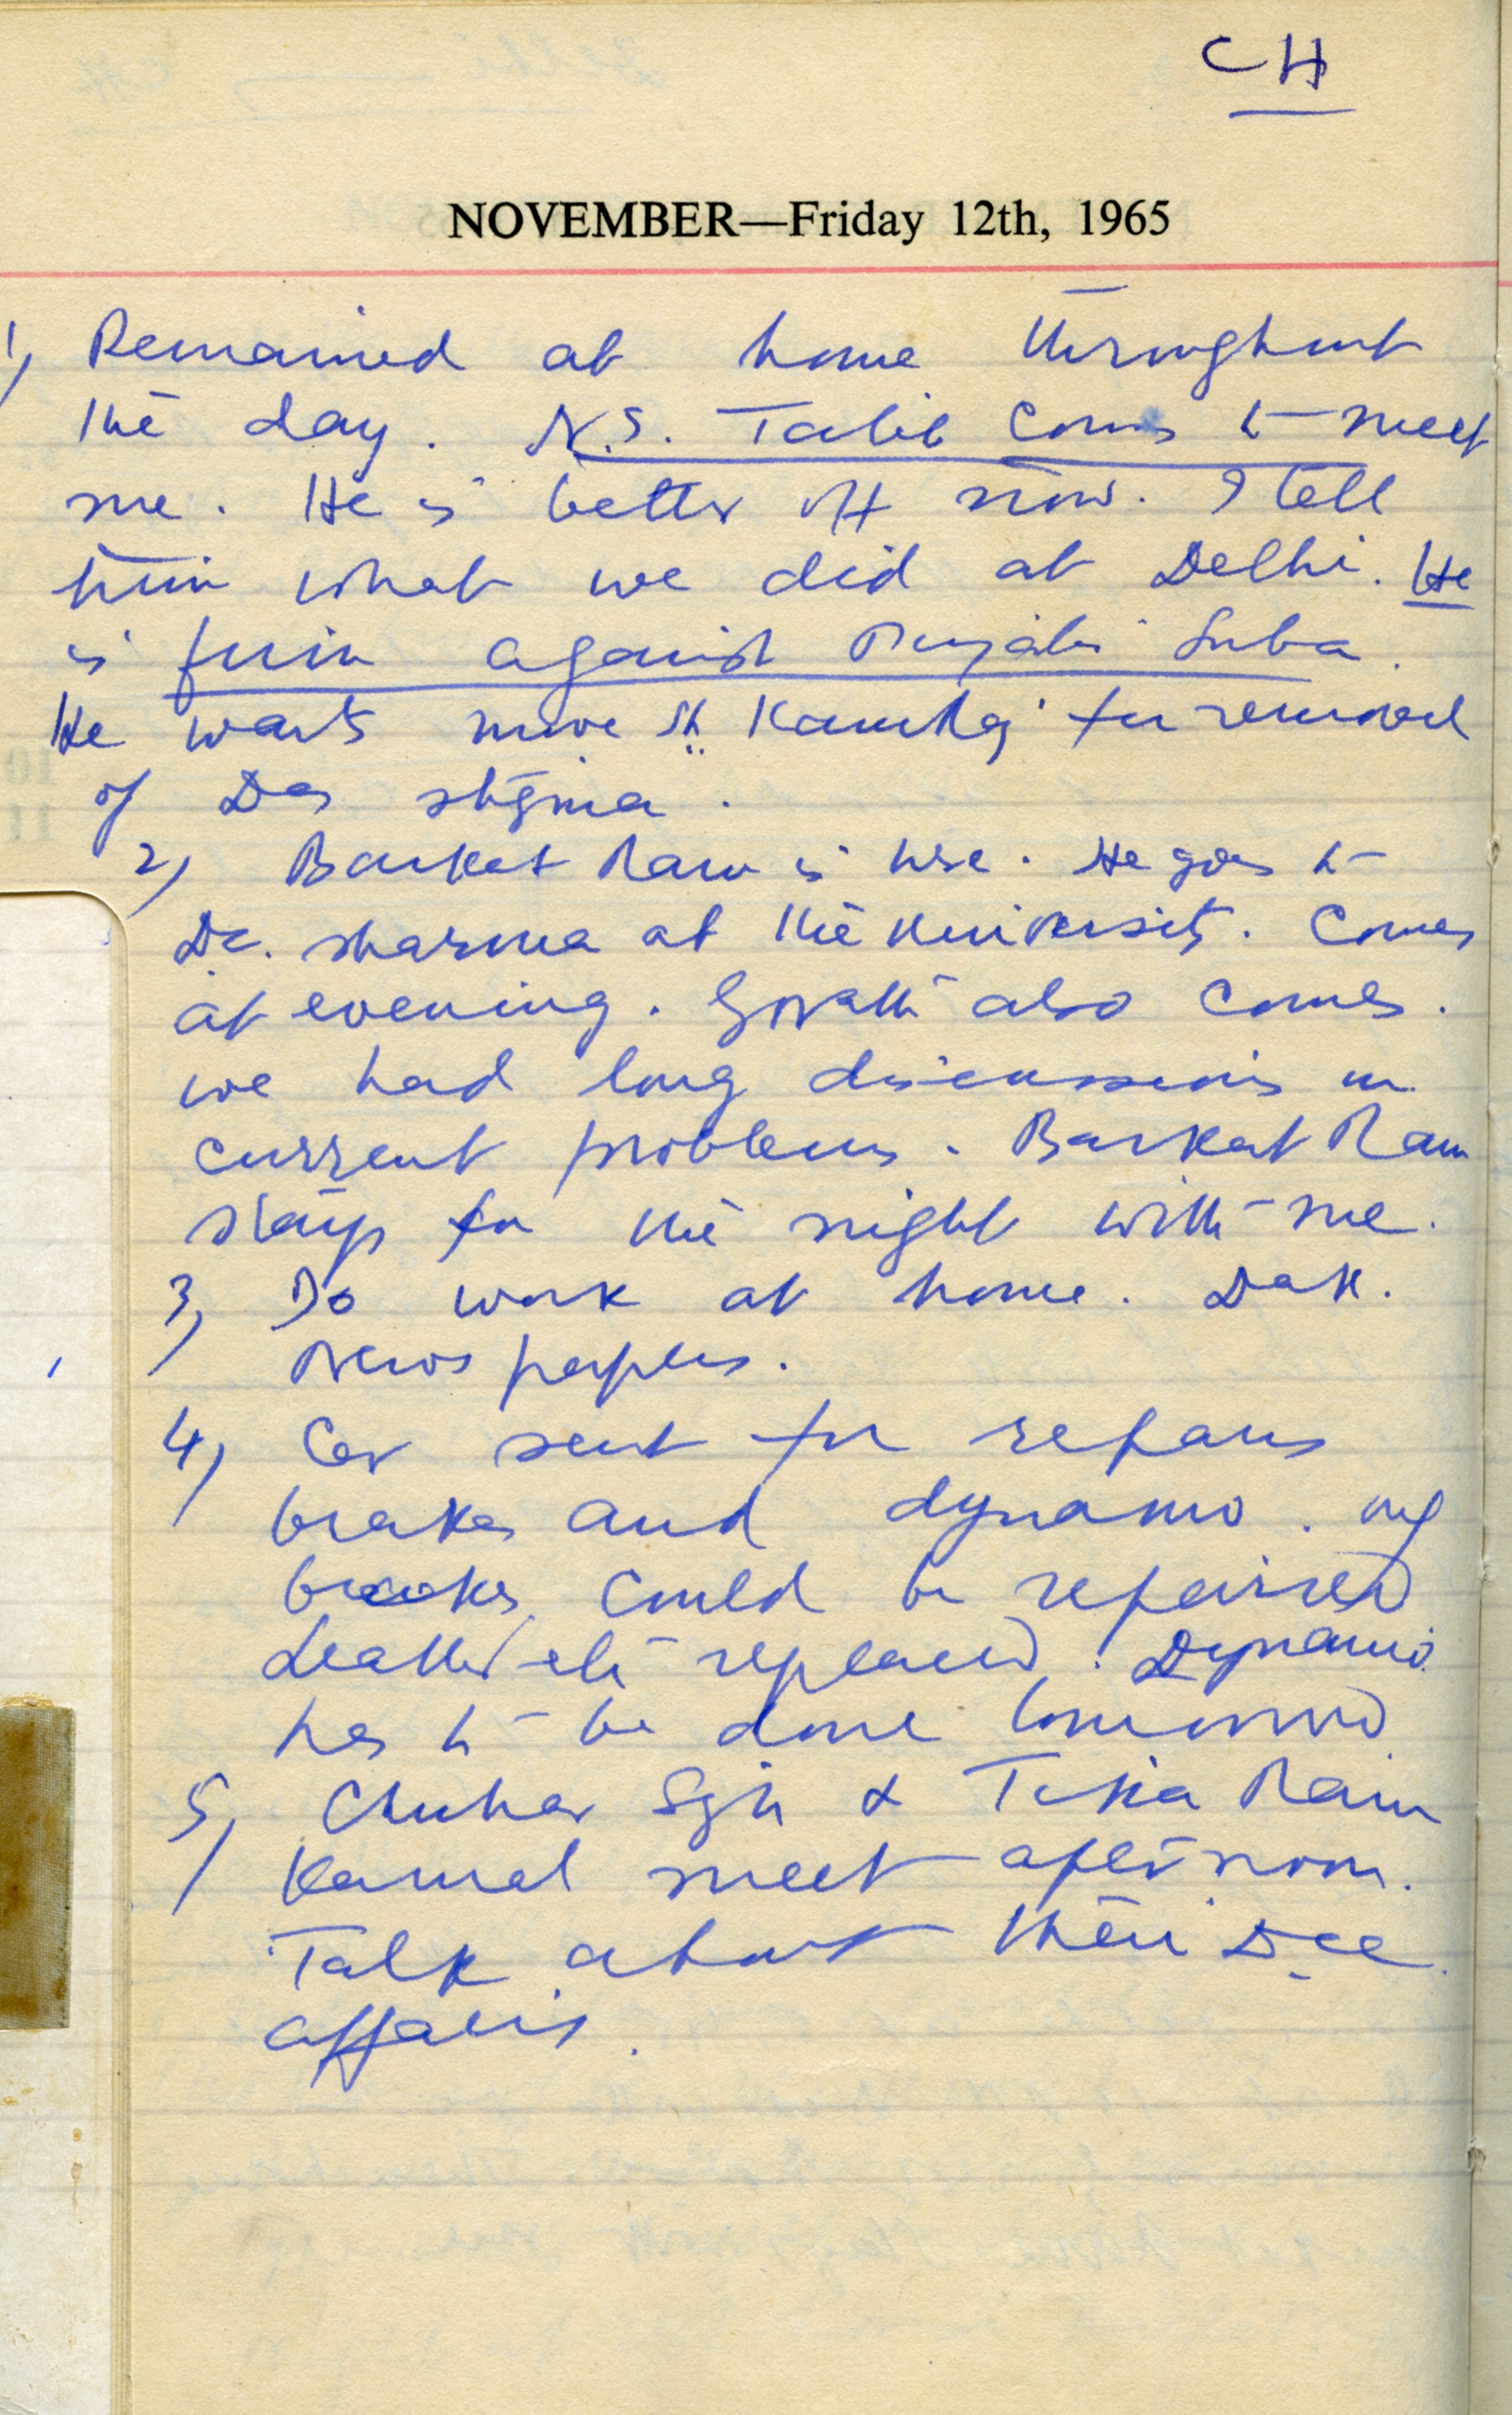 CH
NOVEMBER—Friday 12th, 1965
1) Remained at home throughout
the day. N.S. Talib comes to meet
me. He is better off now. I tell
him what we did at Delhi. He
is firm against Punjabi Suba.
He wants move Sh. Kamraj for removal
of Das stigma.
2) Barkat Ram is here. He goes to
Dr. Sharma at the University. Comes
at evening. also comes.
we had long discussions on
current problems. Barkat Ram
stays for the night with me.
3) Do work at home. Dak.
News papers.
4) Car sent for repairs
brakes and dynamo. only
brakes could be repaired
Leather etc replaced. Dynamo
has to be done tomorrow
5) Chuhar Sgh & Tikia Ram
Karnal meet afternoon.
Talk about their
affairs.